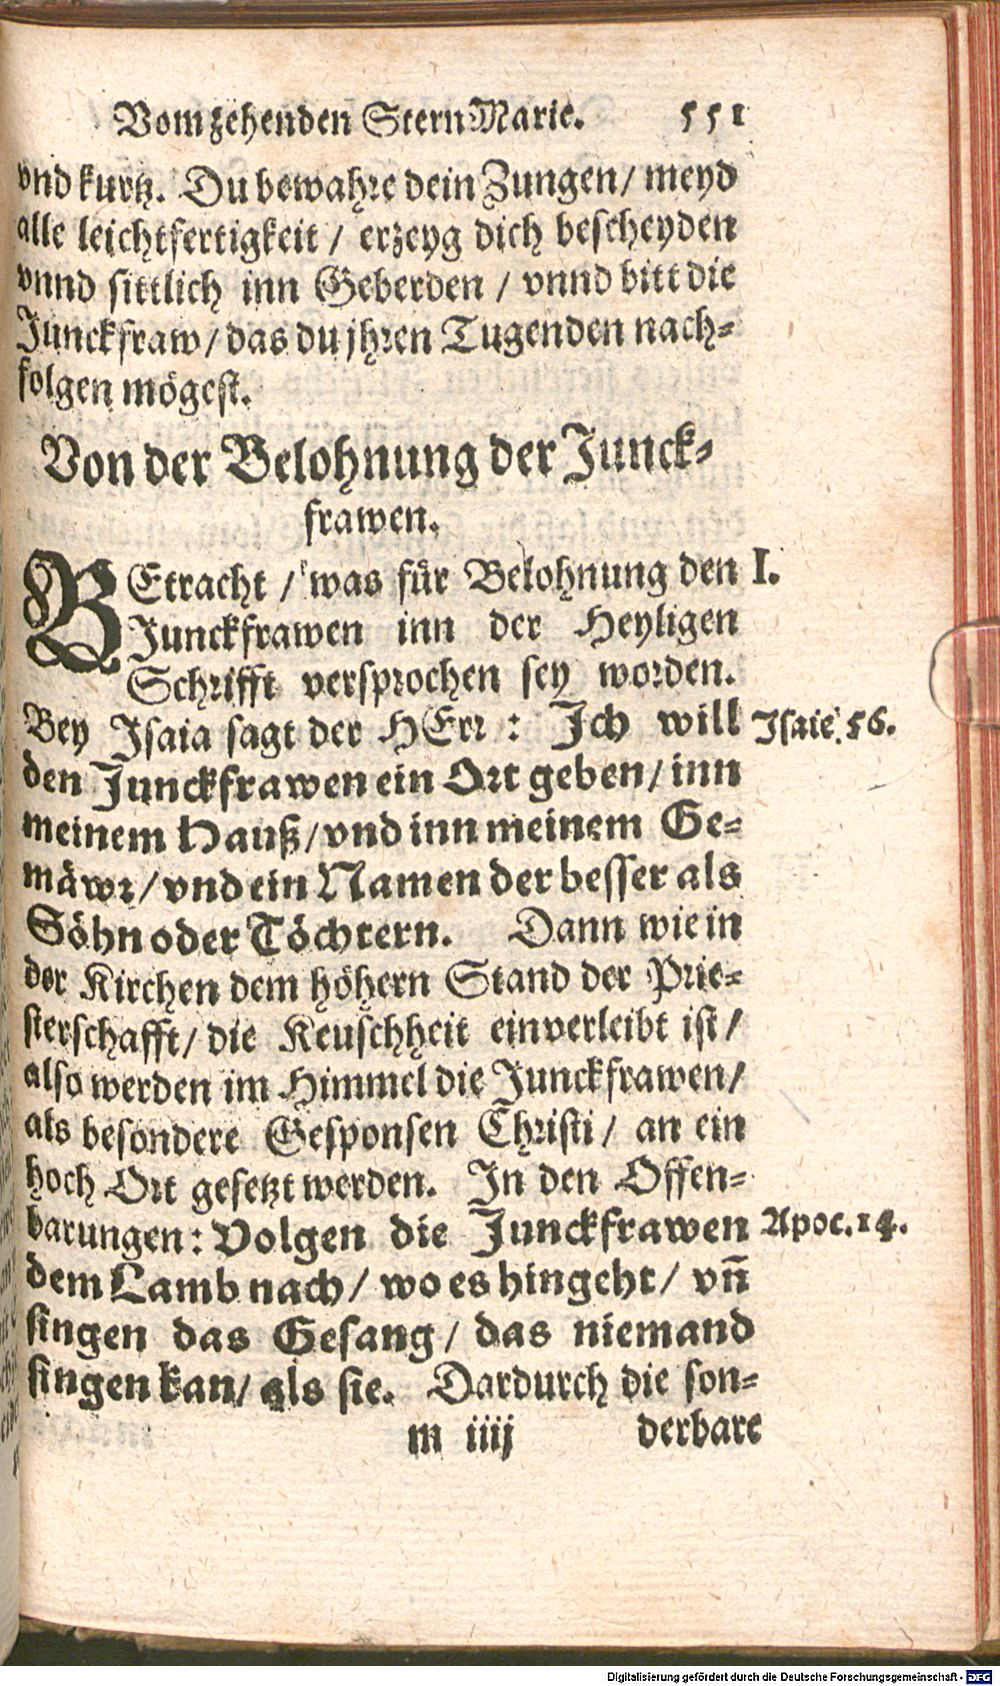 Vom zehenden Stern Marie. 551
vnd kurtz. Du bewahre dein Zungen/ meyd
alle leichtfertigkeit / erzeyg dich bescheyden
vnnd sittlich inn Geberden / vnnd bitt die
Junckfraw/ das du jhren Tugenden nach-
folgen mögest.
Von der Belohnung der Junck-
frawen.
BEtracht / was für Belohnung den I.
Junckfrawen inn der Heyligen
Schrifft versprochen sey worden.
Bey Isaia sagt der HErr : Ich will Isaie 56.
den Junckfrawen ein Ort geben/ inn
meinem Hauß/ vnd inn meinem Ge-
mäwr/ vnd ein Namen der besser als
Söhn oder Töchtern. Dann wie in
der Kirchen dem höhern Stand der Prie-
sterschafft/ die Keuschheit einverleibt ist/
also werden im Himmel die Junckfrawen/
als besondere Gesponsen Christi/ an ein
hoch Ort gesetzt werden. In den Offen-
barungen: Volgen die Junckfrawen Apoc. 14.
dem Lamb nach/ wo es hingeht/ vn̄
singen das Gesang/ das niemand
singen kan/ als sie. Dardurch die son-
m iiij derbare
Digitalisierung gefördert durch die Deutsche Forschungsgemeinschaft - DFG